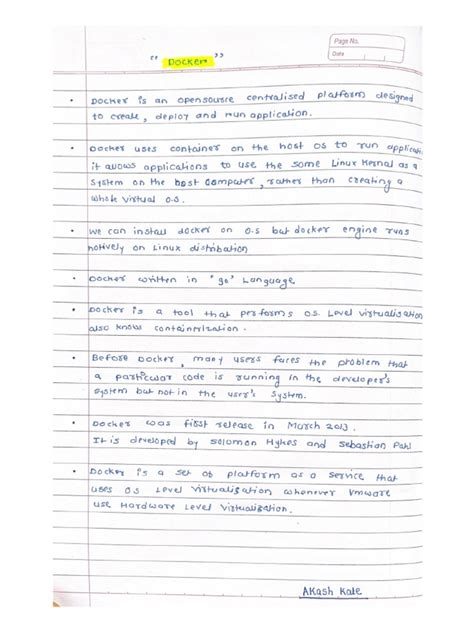 Page No.
Date
" Docker "
• Docker is an opensource centralised platform designed
to create, deploy and run application.
• Docker uses container on the host OS to run application
it allows applications to use the same Linux Kernal as a
system on the host computer, rather than creating a
whole virtual O.S.
• we can install docker on O.S but docker engine runs
natively on Linux distribation
• Docker written in "go" Language
• Docker is a tool that performs O.S. Level virtualisation
also known containerization.
• Before Docker, many users faces the problem that
a particular code is running in the developer's
system but not in the user's system.
• Docker was first release in March 2013.
It is developed by solomon Hykes and Sebastian Pahl
• Docker is a set of platform as a service that
uses O.S Level virtualisation whenever vmware
use Hardware Level virtualization.
Akash Kale